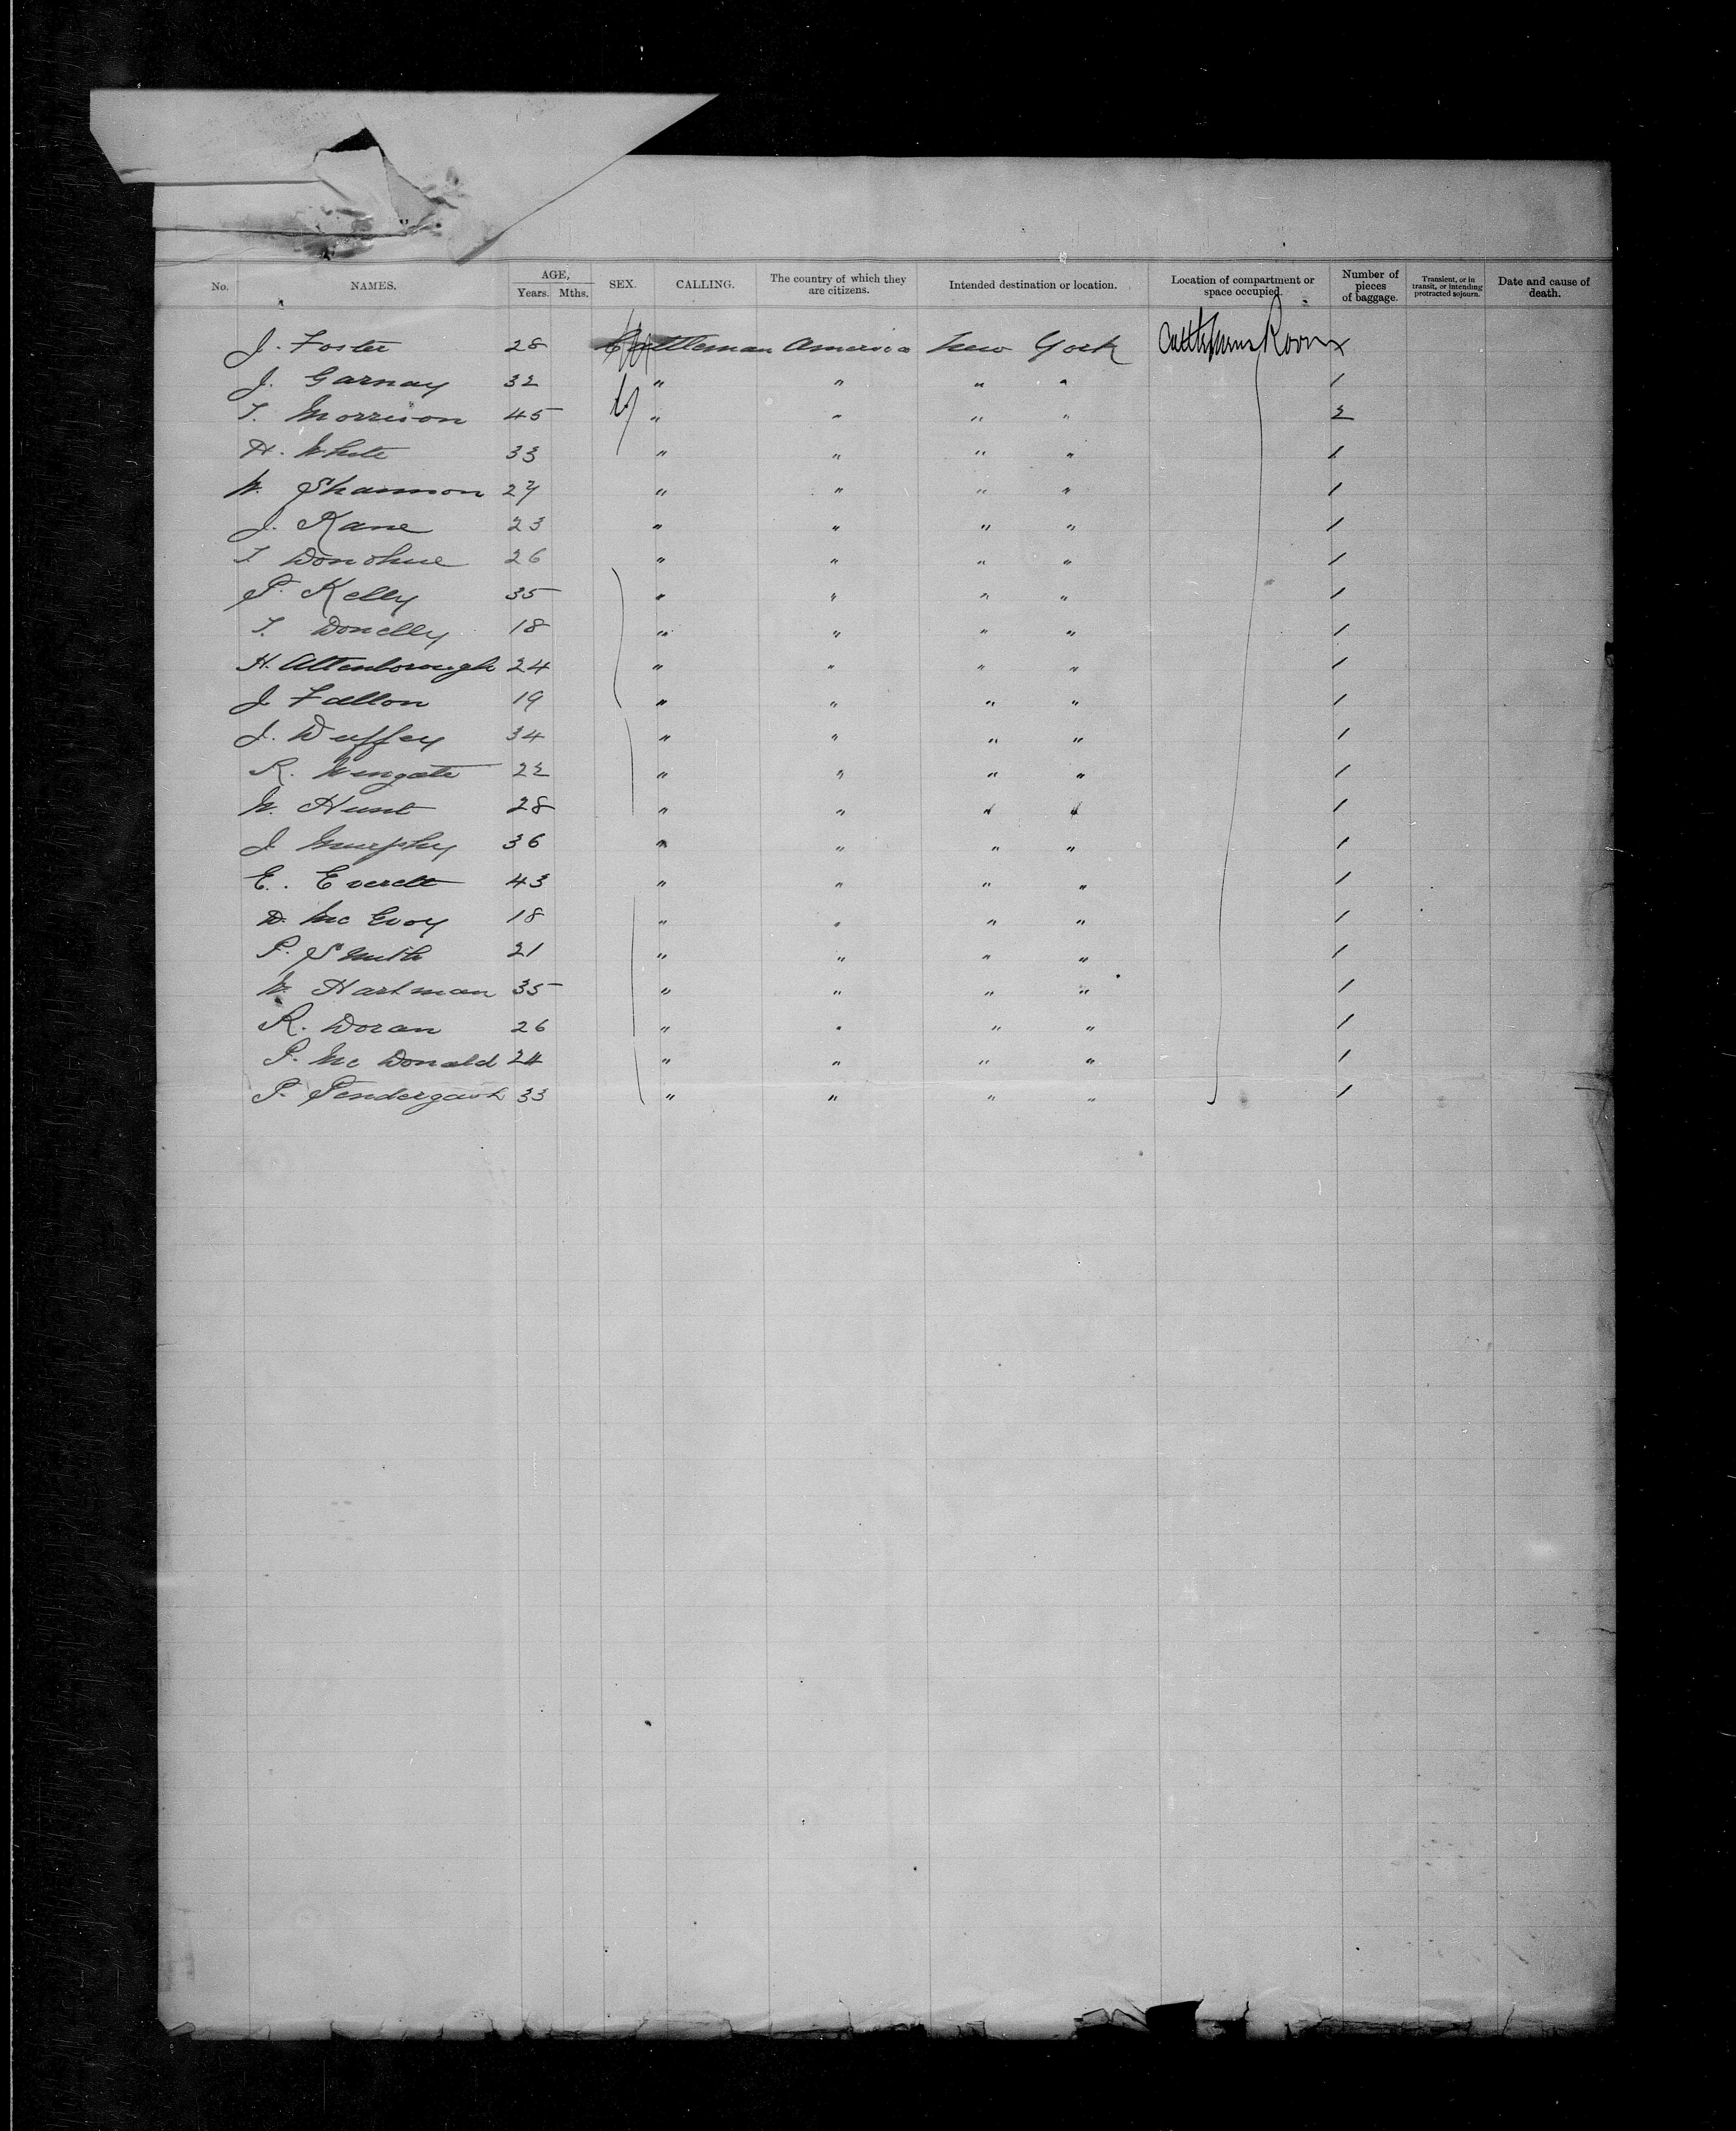 No. NAMES. AGE, Years. Mths. SEX. CALLING. The country of which they are citizens. Intended destination or location. Location of compartment or space occupied. Number of pieces of baggage. Transient, or in transit, or intending protracted sojourn. Date and cause of death.
J. Foster 28 Cattleman America New York Cattlemens Room
J. Garnay 32 " " " " 1
T. Morrison 45 " " " " 2
H. White 33 " " " " 1
W. Shannon 27 " " " " 1
J. Kane 23 " " " " 1
T. Donohue 26 " " " " 1
P. Kelly 35 " " " " 1
T. Donelly 18 " " " " 1
H. Attenborough 24 " " " " 1
J. Fallon 19 " " " " 1
J. Duffey 34 " " " " 1
R. Wingate 22 " " " " 1
W. Hunt 28 " " " " 1
J. Murphy 36 " " " " 1
E. Everett 43 " " " " 1
D. Mc Evoy 18 " " " " 1
P. Smith 21 " " " " 1
W. Hartman 35 " " " " 1
R. Doran 26 " " " " 1
P. Mc Donald 24 " " " " 1
P. Pendergast 33 " " " " 1